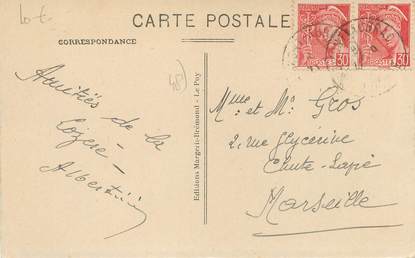 Lo-t-
CARTE POSTALE
CORRESPONDANCE
Amitiés de la
Lozère -
Albertine
(48)
Editions Margerit-Brémond - Le Puy
30
POSTES
30
Mme et Mr Gros
2, rue Glycérine
Chute-Lavie
Marseille